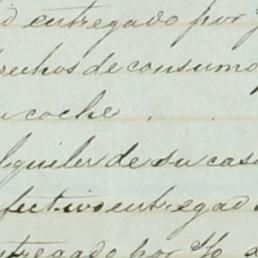 entregado por
rechos de consumo
coche . .
lquiler de su casa
fectivo entregad
ntregado por